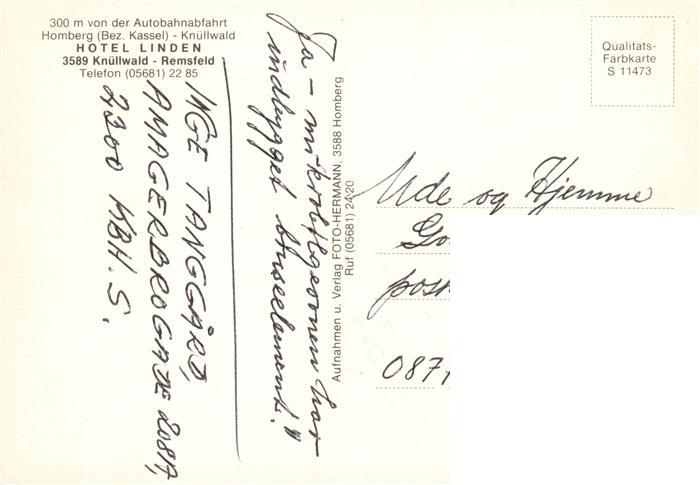 300 m von der Autobahnabfahrt
Homberg (Bez. Kassel) - Knüllwald
HOTEL LINDEN
3589 Knüllwald - Remsfeld
Telefon (05681) 22 85
Ja - mikrobølgeovnen har
indbygget
INGE TANGGÅRD,
AMAGERBROGADE
2300 KBH. S.
Aufnahmen u. Verlag FOTO-HERMANN, 3588 Homberg
Ruf (05681) 24 20
Qualitäts-
Farbkarte
S 11473
Ude og Hjemme
Go
pos
087